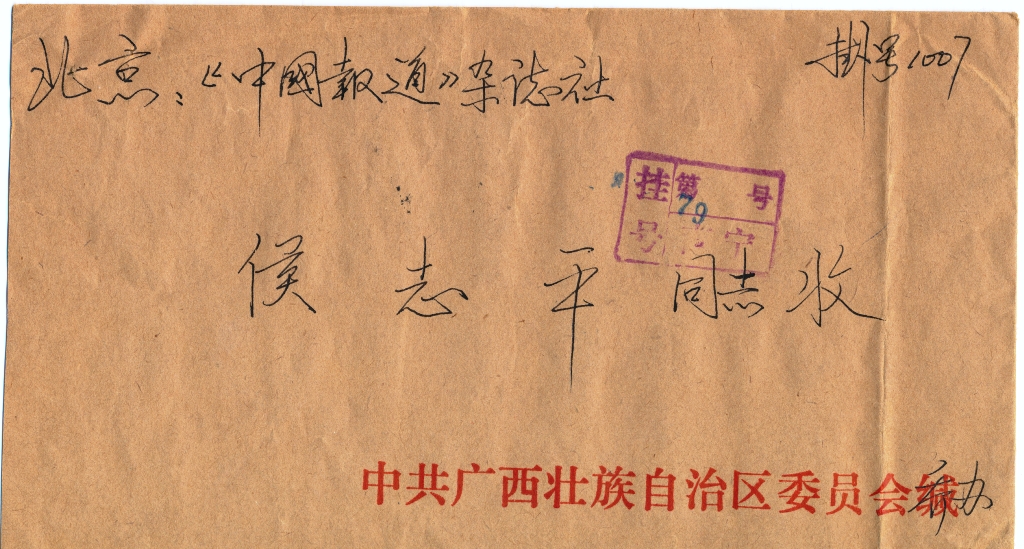 北京：《中國報道》杂誌社
掛号1007
挂号 第79号
宁
侯志平同志收
中共广西壮族自治区委员会缄
办